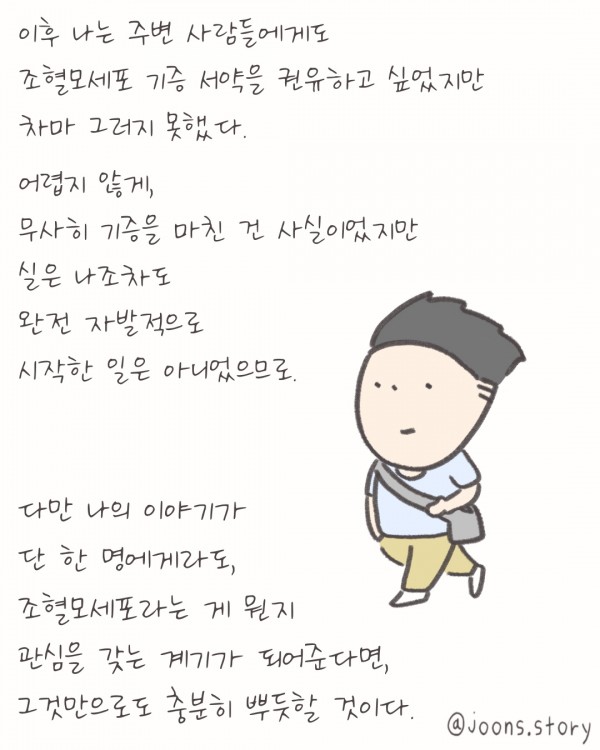 이후 나는 주변 사람들에게도
조혈모세포 기증 서약을 권유하고 싶었지만
차마 그러지 못했다.
어렵지 않게,
무사히 기증을 마친 건 사실이었지만
실은 나조차도
완전 자발적으로
시작한 일은 아니었으므로.
다만 나의 이야기가
단 한 명에게라도,
조혈모세포라는 게 뭔지
관심을 갖는 계기가 되어준다면,
그것만으로도 충분히 뿌듯할 것이다.
@joons.story